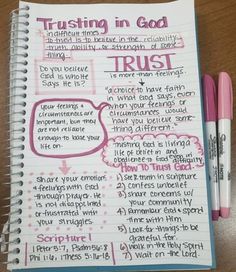 Trusting in God
in difficult times
to trust is to believe in the reliability,
truth, ability, or strength of some
thing.
Do you believe
God is who He
Says He is?
TRUST
is more than feelings.
"a choice to have faith
in what God says, even
when your feelings or
circumstances would
have you believe some
thing different."
Your feelings &
circumstances are
important, but they
are not reliable
enough to base your
life on.
trusting God is living a
life of belief in and
obedience to God
Share your emotions
& feelings with God
through prayer. He
is not disappointed
or frustrated with
your struggles.
How To Trust God
1) Seek truth in scripture
2) Confess unbelief
3) Share concerns w/
your community
4) Remember God & spend
time with Him
5) Look for things to be
grateful for
6) Walk in the Holy Spirit
7) Wait on the Lord
Scripture!
1 Peter 5:7, Psalm 56:8
Phil 1:6, 1 Thess 5:16-18